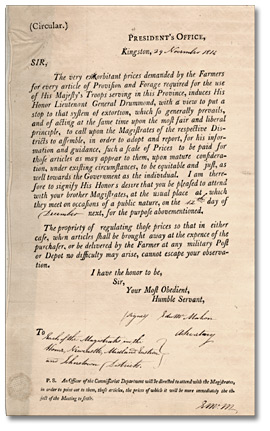 (Circular.)
PRESIDENT'S OFFICE,
Kingston, 29 November 1814
SIR,
THE very exorbitant prices demanded by the Farmers
for every article of Provision and Forage required for the use
of His Majesty's Troops serving in this Province, induces His
Honor Lieutenant General Drummond, with a view to put a
stop to that system of extortion, which so generally prevails,
and of acting at the same time upon the most fair and liberal
principle, to call upon the Magistrates of the respective Dis-
tricts to assemble, in order to adopt and report, for his infor-
mation and guidance, such a scale of Prices to be paid for
those articles as may appear to them, upon mature conside-
ration, under existing circumstances, to be equitable and just, as
well towards the Government as the individual. I am there-
fore to signify His Honor's desire that you be pleased to attend
with your brother Magistrates, at the usual place at which
they meet on occasions of a public nature, on the 12th day of
December next, for the purpose abovementioned.
The propriety of regulating those prices so that in either
case, when articles shall be brought away at the expence of the
purchaser, or be delivered by the Farmer at any military Post
or Depot no difficulty may arise, cannot escape your obser-
vation.
I have the honor to be,
Sir,
Your Most Obedient,
Humble Servant,
(signed) Edw McMahon
To
the Magistrates in the
Home, Newcastle, Midland
and Johnstown Districts
P. S. An Officer of the Commissariat Department will be directed to attend with the Magistrates,
in order to point out to them, those articles, the prices of which it will be more immediately the ob-
ject of the Meeting to settle.
E McM